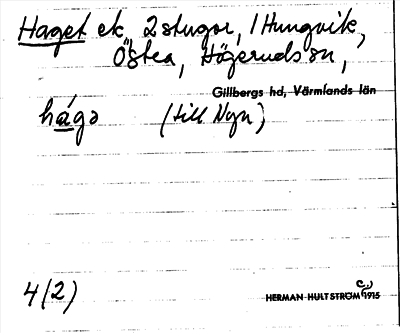 Haget ek, 2 stugor, 1 Hungvik,
Östra, Högeruds sn,
Gillbergs hd, Värmlands län
hágə (till Nyn)
4(2) HERMAN HULTSTRÖM 1915